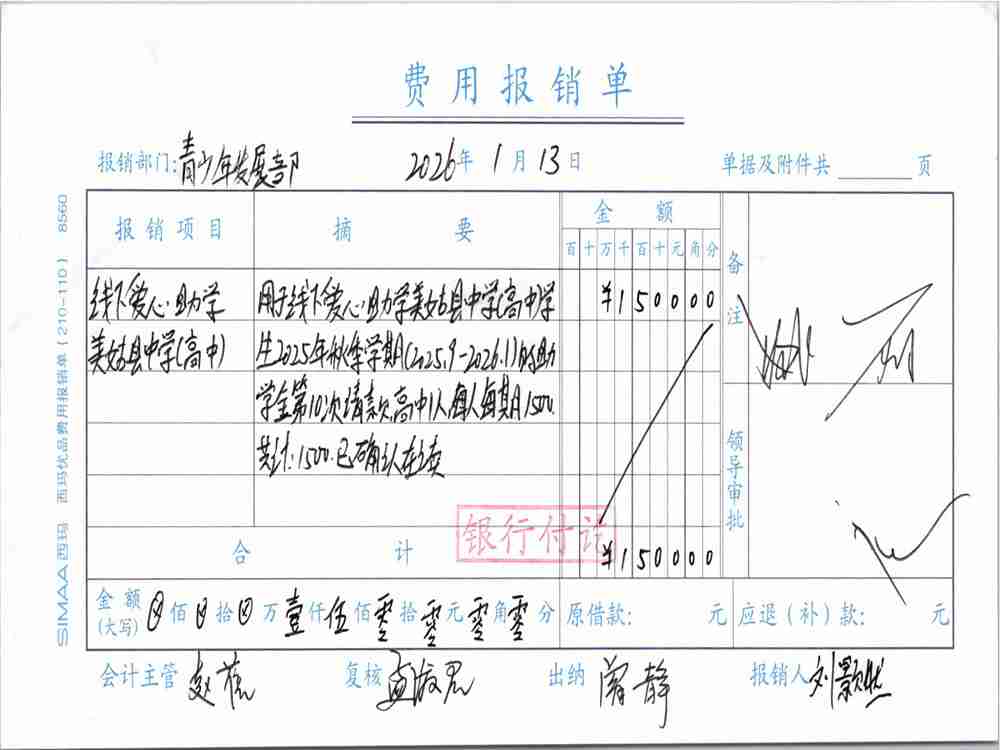 费用报销单
报销部门:青少年发展部 2026年1月13日 单据及附件共 页
报销项目 摘要 金额 备注
百十万千百十元角分
线下爱心助学 用于线下爱心助学美姑县中学(高中)学 ¥150000
美姑县中学(高中) 生2025年秋季学期(2025.9-2026.1)的助
学金第10次请款,高中1人,每人每期1500.
共计:1500.已确认在读
领导审批
银行付讫
合计 ¥150000
金额(大写) ⊗佰⊗拾⊗万壹仟伍佰零拾零元零角零分 原借款: 元 应退(补)款: 元
会计主管 赵 复核 孟淑君 出纳 阎静 报销人 刘颢然
SIMAA西玛 西玛优品费用报销单(210-110) 8560